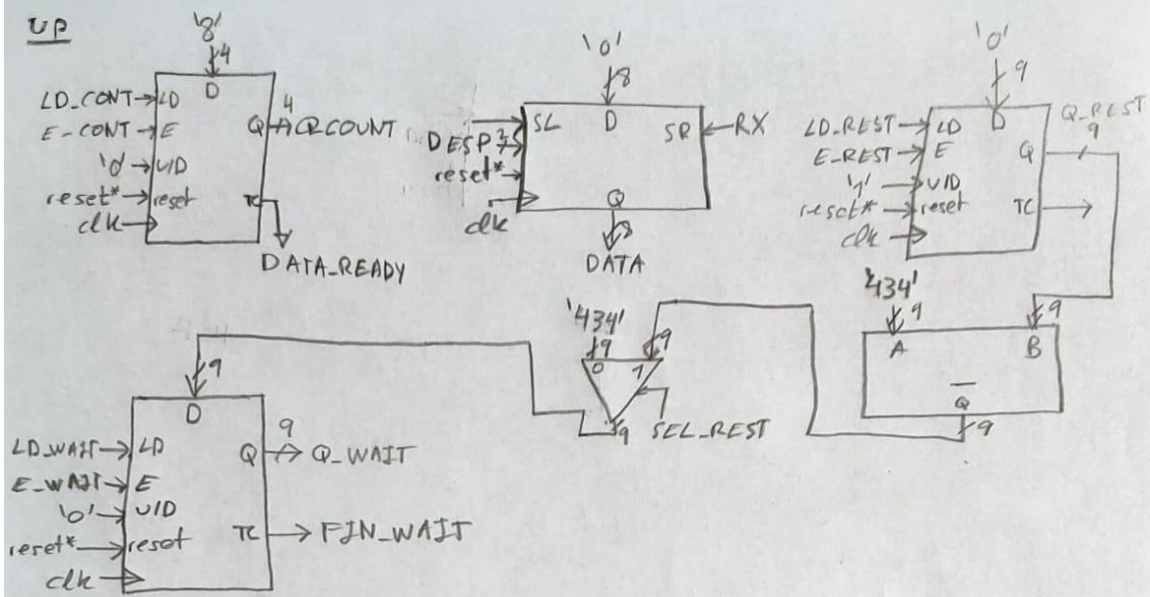 UP
'8'
4
D
LD_CONT LD
E-CONT E
4
Q QCOUNT
'0' U/D
reset* reset
TC
clk
DATA_READY
'0'
8
SL D SR RX
DESP 2
reset*
clk
Q
8
DATA
'0'
9
D
LD_REST LD
E_REST E
Q_REST
9
Q
'1' U/D
reset* reset
TC
clk
'434'
9
9
A B
Q
9
'434'
9
9
0 1
9 SEL_REST
9
D
LD_WAIT LD
9
Q Q_WAIT
E_WAIT E
'0' U/D
reset* reset
TC FIN_WAIT
clk